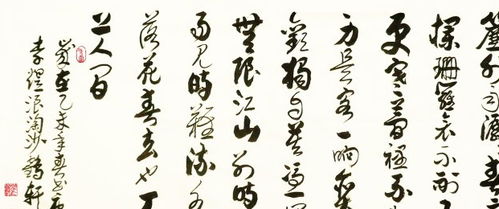 簾外雨潺
闌珊羅衾不耐
更寒夢裡不
身是客一晌貪
歡獨自莫憑
無限江山別時
易見時難流水
落花春去也天
上人间
歲在乙未年春书
李煜浪淘沙 轩